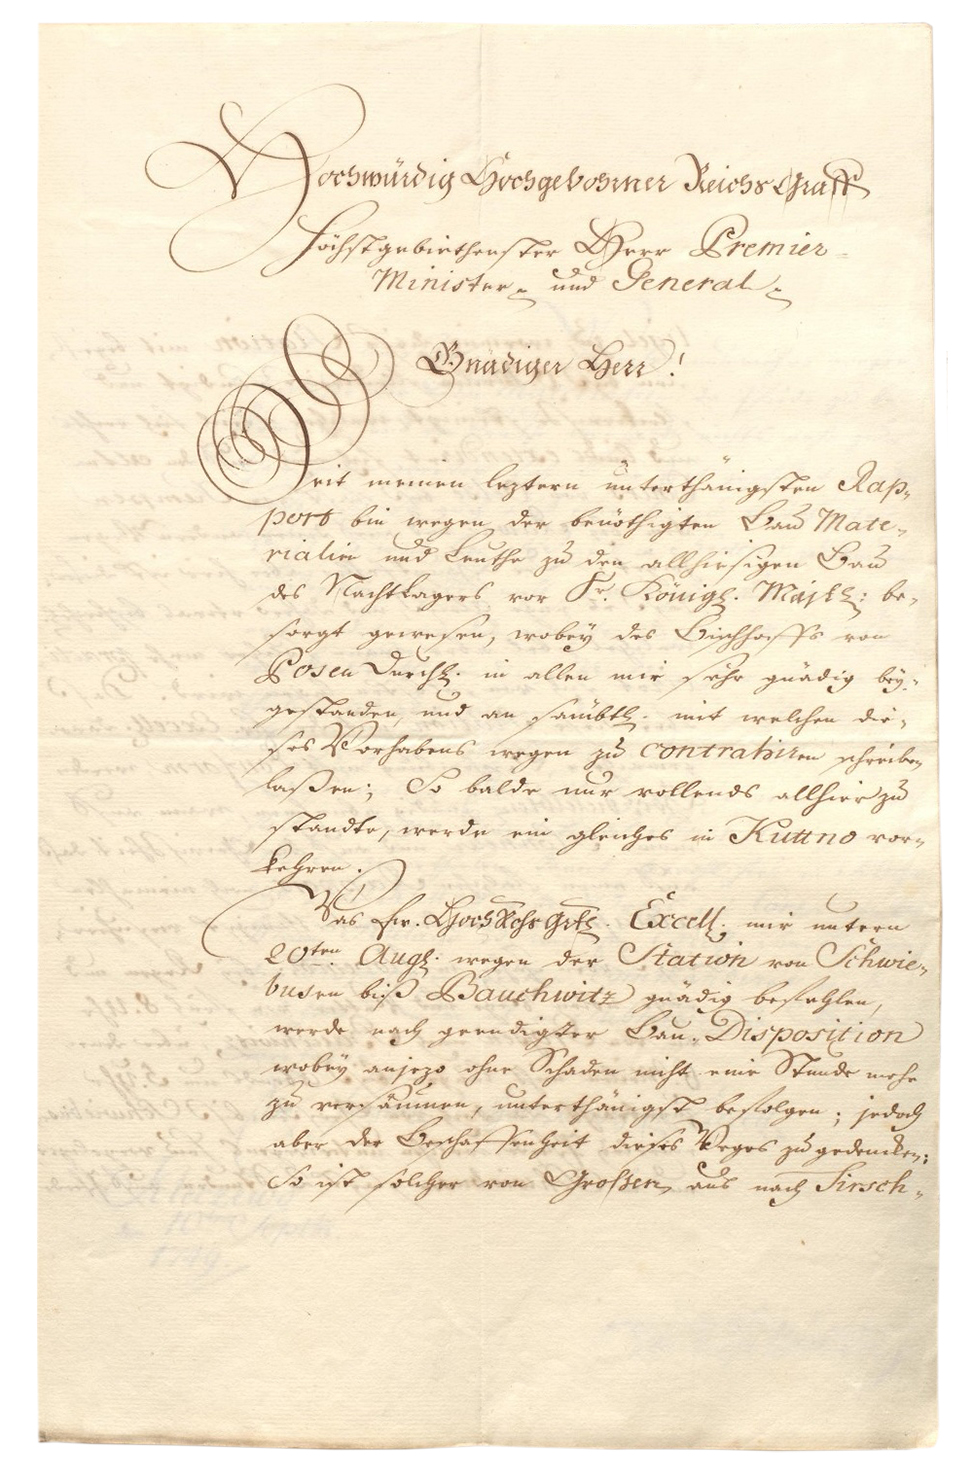 Hochwürdig Hochgebohrner Reichs Graff
Höchstgebiethenster Herr Premier-
Minister- und General-
Gnädiger Herr!
Seit meinen leztern unterthänigsten Rap-
port bin wegen der benöthigten Bau Mate-
rialien und Leuthe zu den allhiesigen Bau
des Nachtlagers vor Sr. Königl. Majtt: be-
sorgt gewesen, wobey des Bischhoffs von
Posen Durchl. in allen mir sehr gnädig bey-
gestanden, und an sämbtl. mit welchen die-
ses Vorhabens wegen zu contrahiren schreiben
laßen; So balde nur vollends allhier zu
stande, werde ein gleiches in Kuttno vor-
kehren.
Was Ew. HochRchsGrfl. Excell. mir untern
20ten Augl. wegen der Station von Schwie-
busen biß Bauchwitz gnädig befohlen,
werde nach geendigter Bau-Disposition
wobey anjezo ohne Schaden nicht eine Stunde mehr
zu versäumen, unterthänigst befolgen; jedoch
aber der Beschaffenheit dieses Weges zu gedencken:
So ist solcher von Großen aus nach Tirsch-